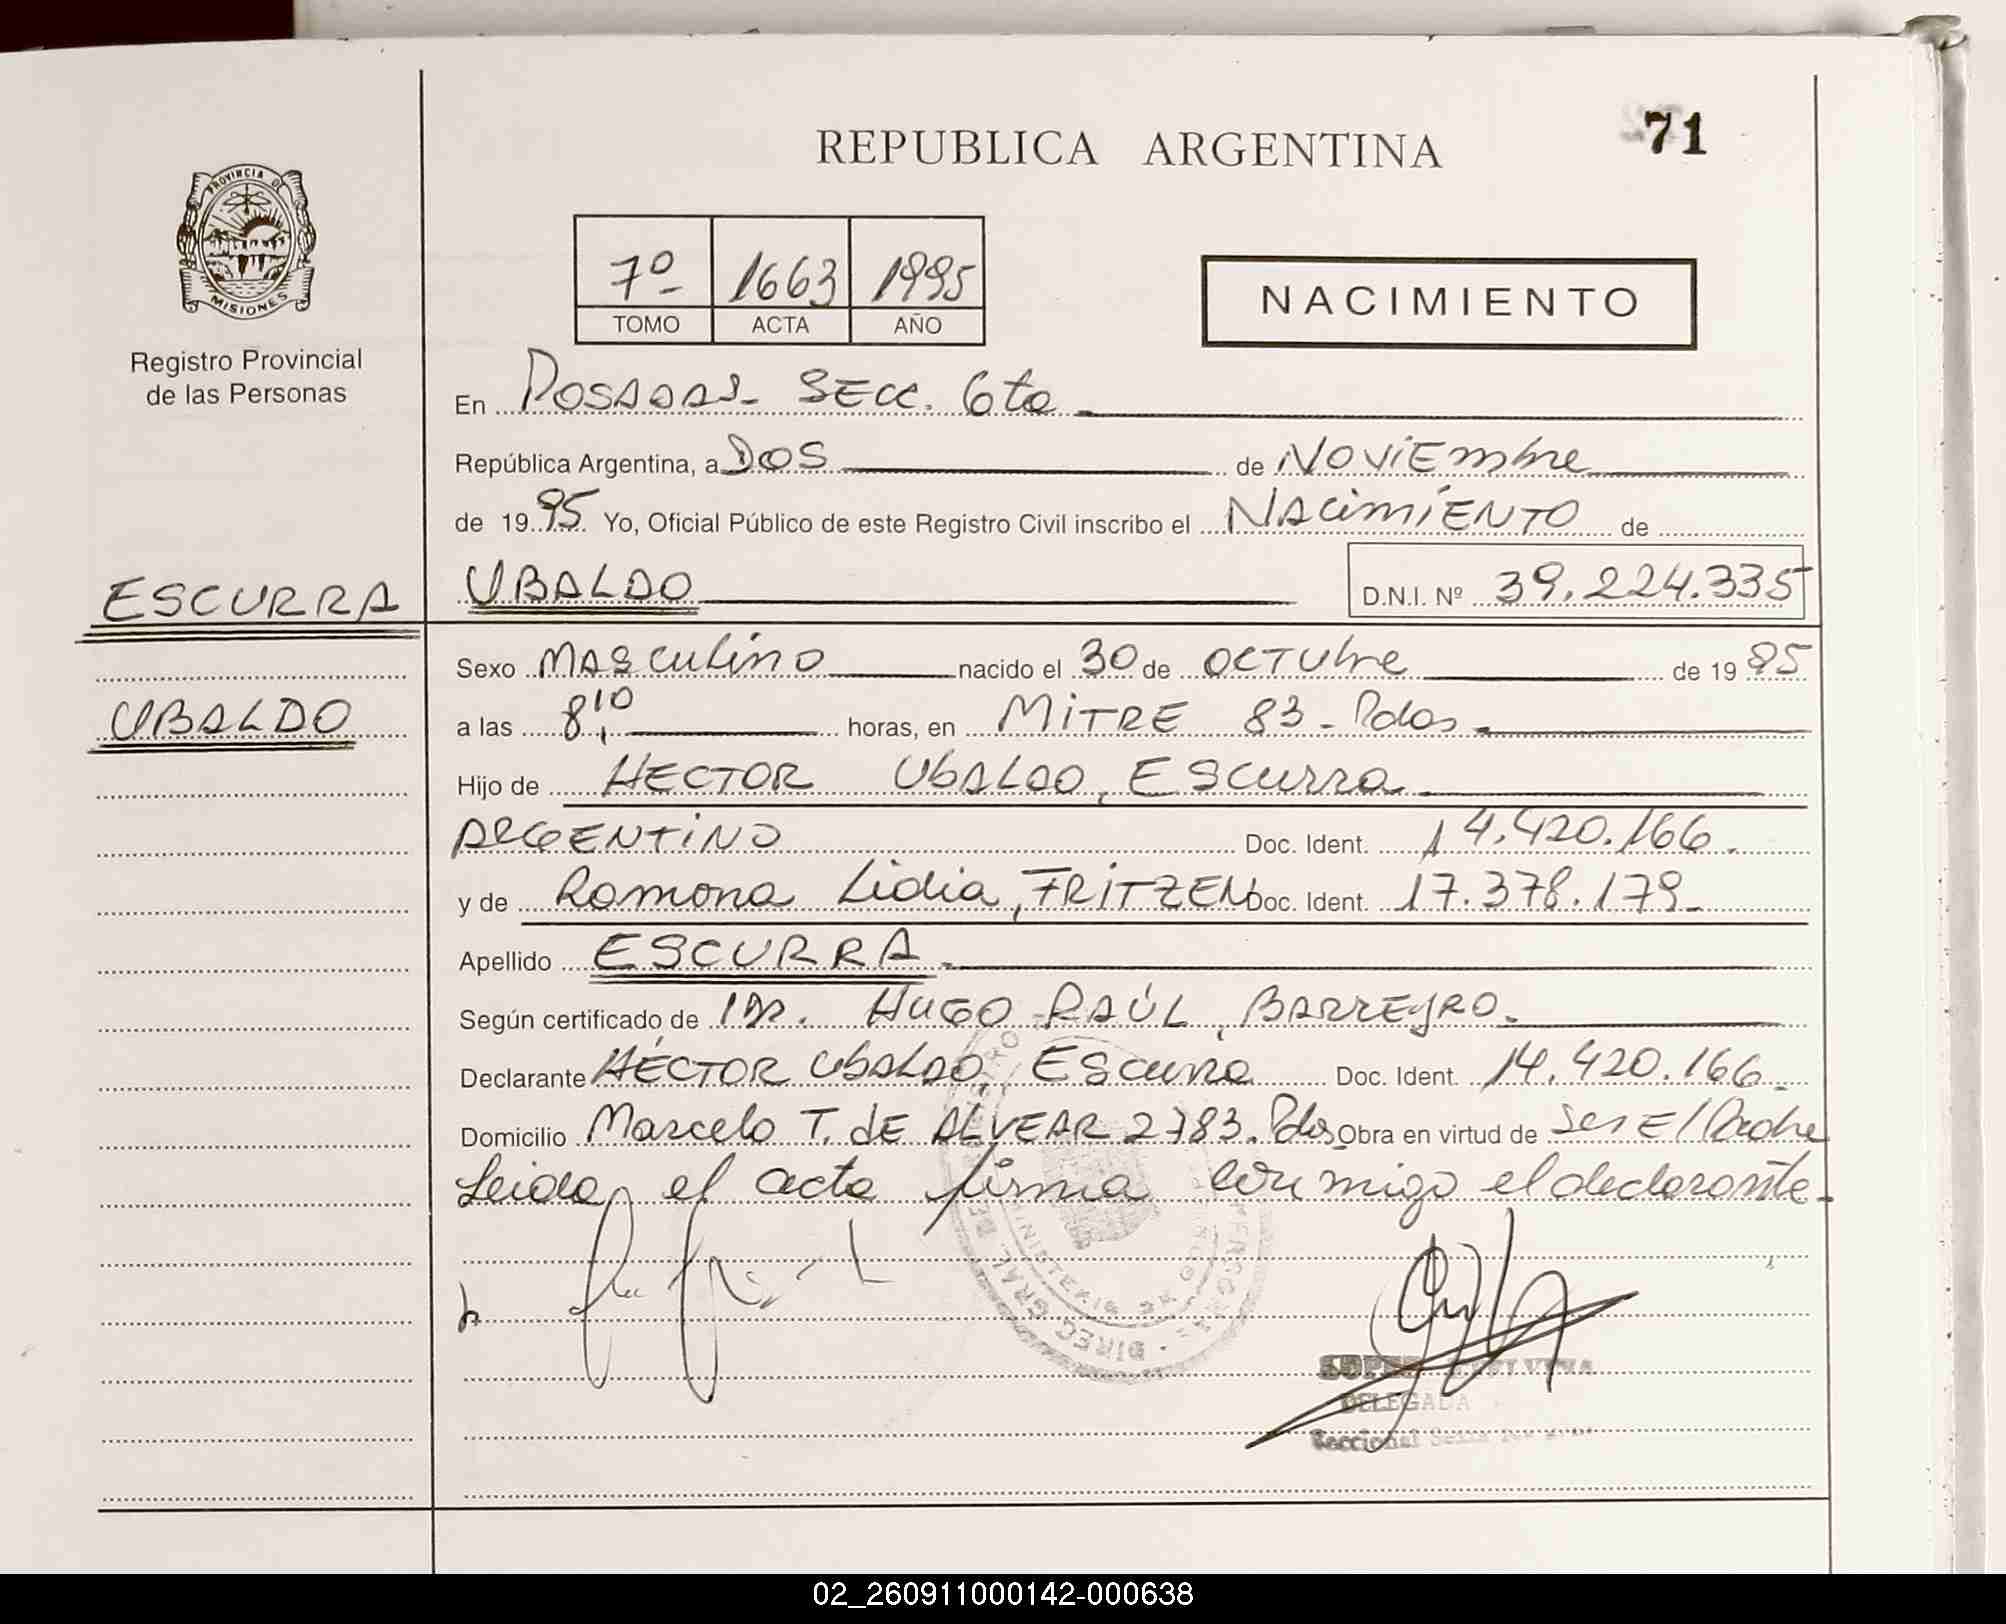 71
REPUBLICA ARGENTINA
PROVINCIA DE
MISIONES
Registro Provincial
de las Personas
7º 1663 1995
TOMO ACTA AÑO
NACIMIENTO
En Posadas - Secc. 6ta
República Argentina, a Dos de Noviembre
de 1995 Yo, Oficial Público de este Registro Civil inscribo el Nacimiento de
ESCURRA UBALDO D.N.I. Nº 39.224.335
Sexo Masculino nacido el 30 de Octubre de 1995
UBALDO
a las 8,10 horas, en Mitre 83 - Pdas
Hijo de Hector Ubaldo, Escurra
Argentino Doc. Ident. 14.420.166.
y de Ramona Lidia, FRITZEN Doc. Ident. 17.378.179
Apellido ESCURRA.
Según certificado de Dr. Hugo Raúl, Barreyro.
Declarante Héctor Ubaldo, Escurra Doc. Ident. 14.420.166
Domicilio Marcelo T. de Alvear 2783. Pdas Obra en virtud de Ser El Padre
Leida el acta firma conmigo el declarante.
DIREC. GRAL. DE
DELEGADA
Seccional
02_260911000142-000638